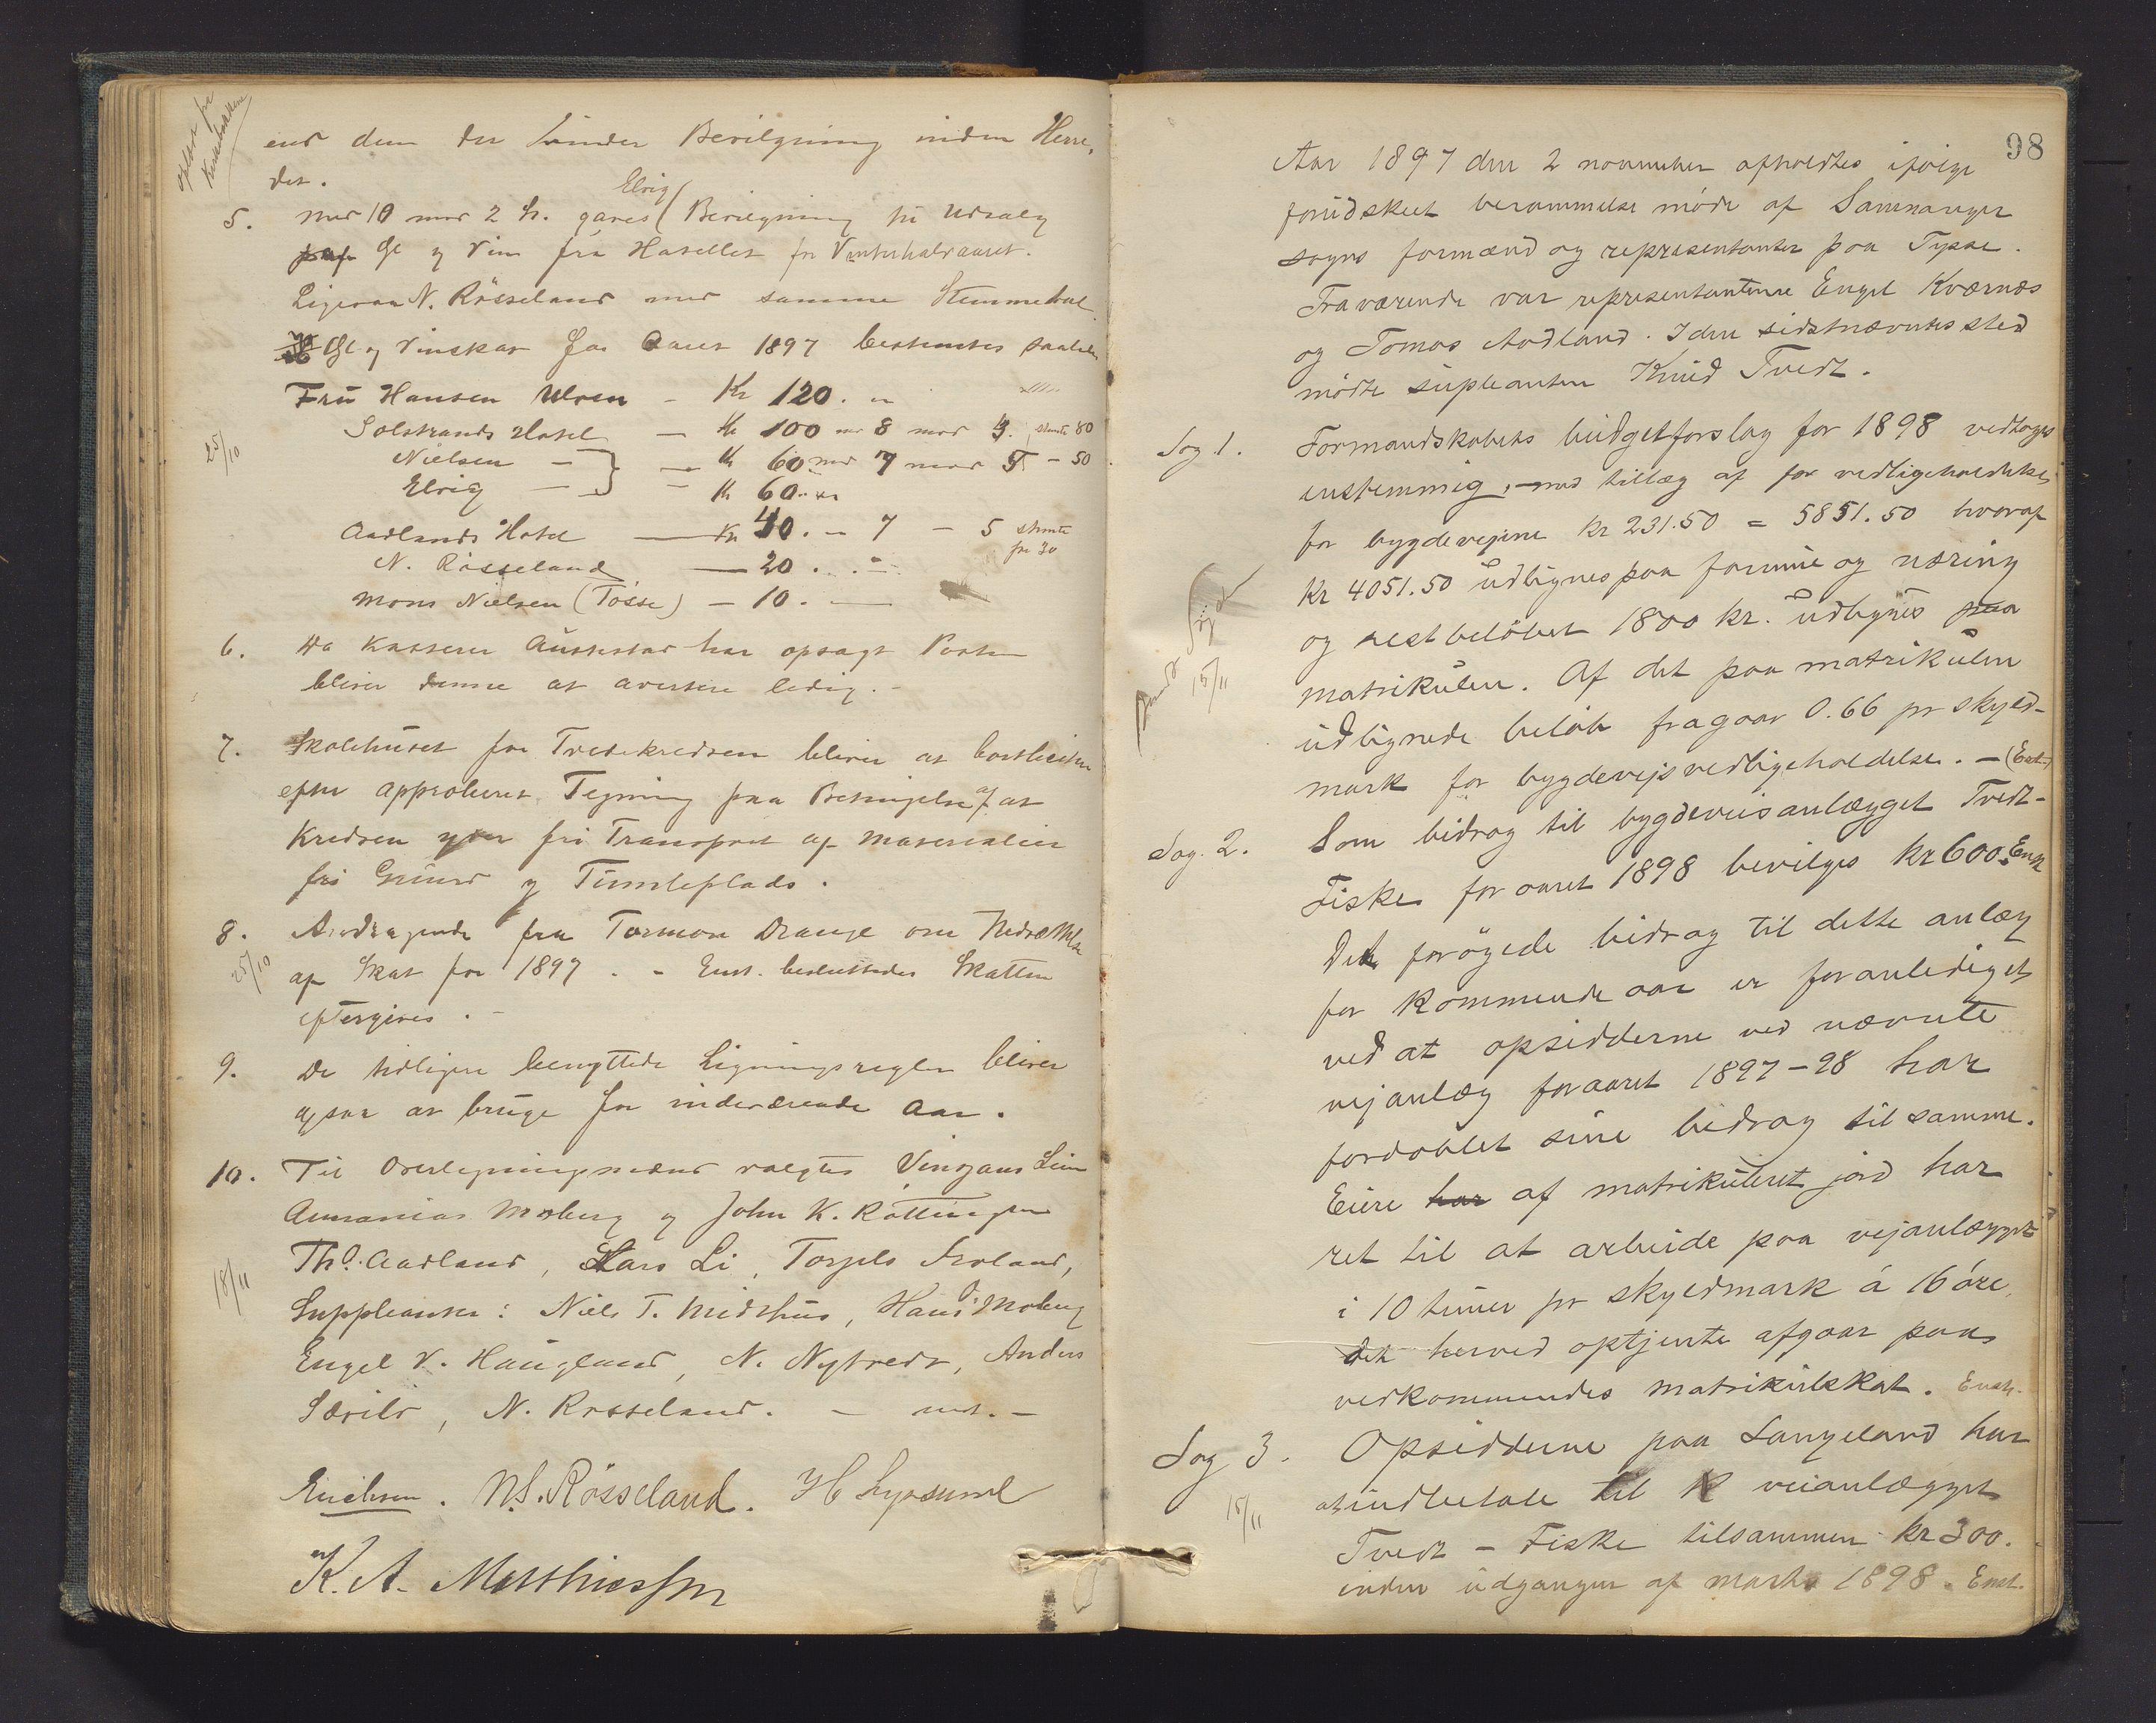 end dem der under Bevilgning inden Herre,
det.
5. med 10 mod 2 St. gaves Elvig Bevilgning til Udsalg
af Øl og Vin fra Hotellet for Vinterhalvaaret.
Ligesaa N. Rösseland med samme Stemmetal.
Øl og Vinskat for Aaret 1897 bestemtes saaledes
Frü Hansen Ulven - Kr 120. "
Solstrands Hotel - Kr 100 med 8 mod 4. stemte 80
Nielsen - Kr 60 med 7 mod 5 - 50
Elvig - Kr 60.
25/10
Aadlands Hotel - Kr 40. - 7 - 5 stemte
for 30
N. Rösseland - 20.
Mons Nielsen (Tösse) - 10.
6. Da Kasserer har opsagt Posten
bliver denne at avertere ledig. -
7. Skolehuset for Tvedtkredsen bliver at bortlicitere
efter approberet Tegning paa Betingelse af at
Kredsen yder fri Transport af Materialier
fri Grund og Tumleplads.
8. Andragende fra Tormon Drange om Nedsættelse
25/10
af Skat for 1897. - Enst. besluttedes Skatten
eftergives. -
9. De tidligere benyttede Ligningsregler bliver
ogsaa at bruge for indeværende Aar.
10. Til Overligningsmænd valgtes Vingans Lien
Annanias Moberg og John K. Röttingen
Th. O. Aadland, Lars Li, Torgils Frøland,
18/11
Suppleanter: Niels T. Midthus, Hans J. Moberg
Engel V. Haugland, N. Nytvedt, Anders
Sævild, N. Rösseland. - enst. -
Erichsen. N. S. Rösseland. H Lyssand
K. A. Matthiessen
98
Aar 1897 den 2 november afholdtes ifølge
forudskeet berammelse møde af Samnanger
sogns formænd og repræsentanter paa Tysse.
Fraværende var repræsentanterne Engel Kværnæs
og Tomas Aadland. I den sidstnævntes sted
mödte supleanten Knud Tvedt.
Sag 1. Formandskabets budgetforslag for 1898 vedtoges
enstemmig, med tillæg af for vedligeholdelse
for bygdeveiene kr 231.50 = 5851.50 hvoraf
Kr 4051.50 udlignes paa formue og næring
og restbelöbet 1800 kr. udlignes paa
15/11
matrikulen. Af det paa matrikulen
udlignede belöb fragaar 0.66 pr skyld-
mark for bygdevejs vedligeholdelse. - (Enst.)
Sag. 2. Som bidrag til bygdeveisanlægget Tvedt-
Fiske for aaret 1898 bevilges kr 600. Enst.
Det forögede bidrag til dette anlæg
for kommende aar er foranlediget
ved at opsidderne ved nævnte
vejanlæg for aaret 1897-98 har
fordoblet sine bidrag til samme.
Eiere har af matrikuleret jord har
ret til at arbeide paa vejanlægget
i 10 timer pr skyldmark á 16 öre,
det herved optjente afgaar paa
vedkommendes matrikulskat. Enst.
Sag 3. Opsidderne paa Langeland har
15/11
at indbetale til veianlægget
Tvedt - Fiske tilsammen kr 300.
inden udgangen af marts 1898. Enst.